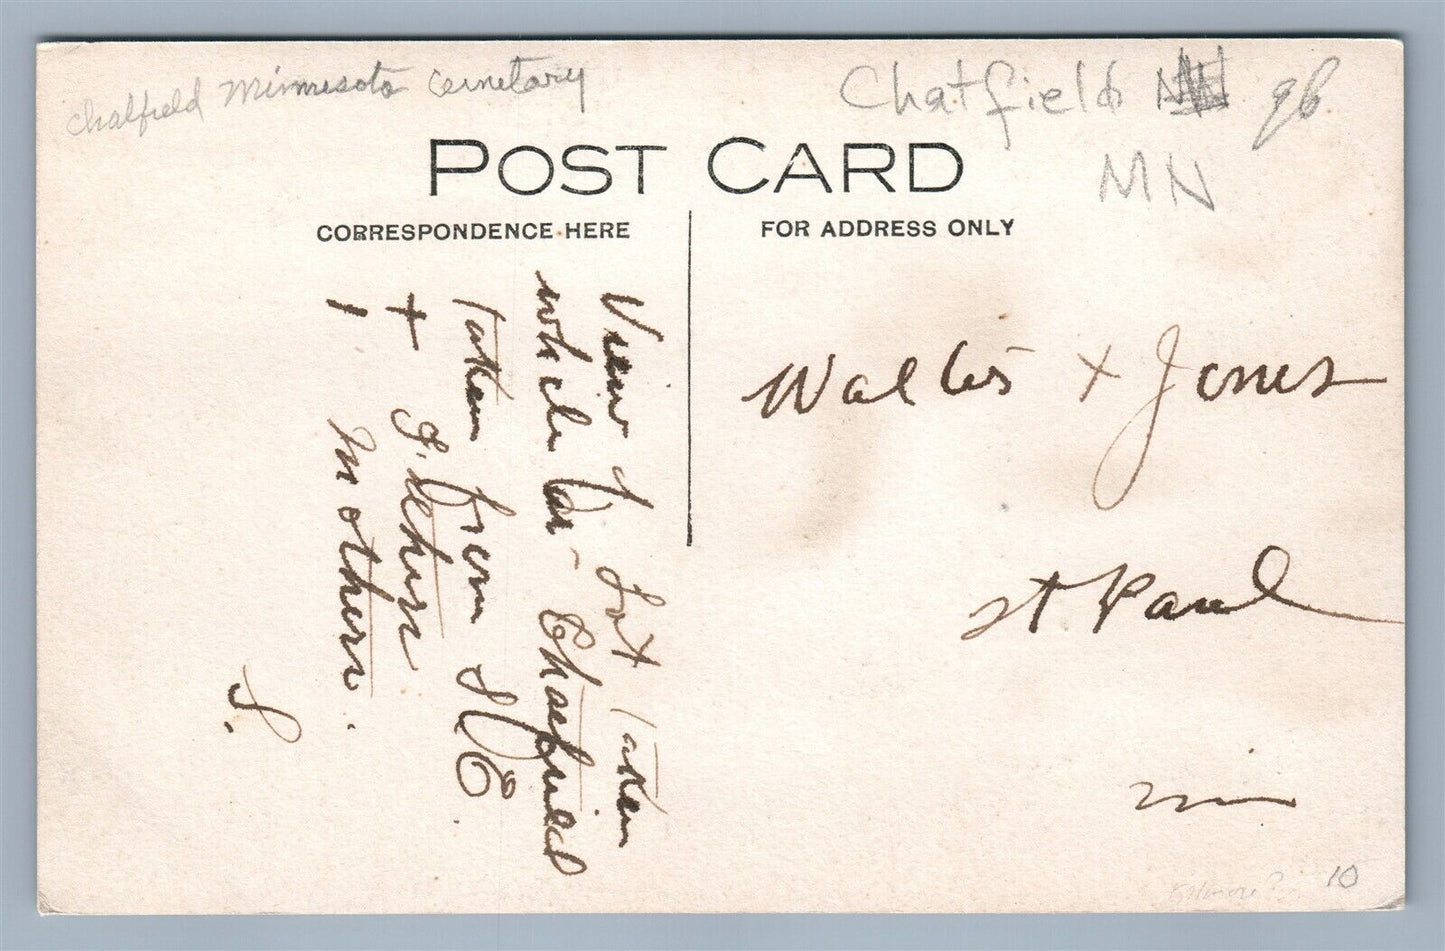 Chatfield Minnesota Cemetary
Chatfield MN
MN
POST CARD
CORRESPONDENCE HERE
FOR ADDRESS ONLY
View of Lot taken
while in Chatfield
taken from S E
+
In others.
S.
Walter + Jones
St Paul
Min
10